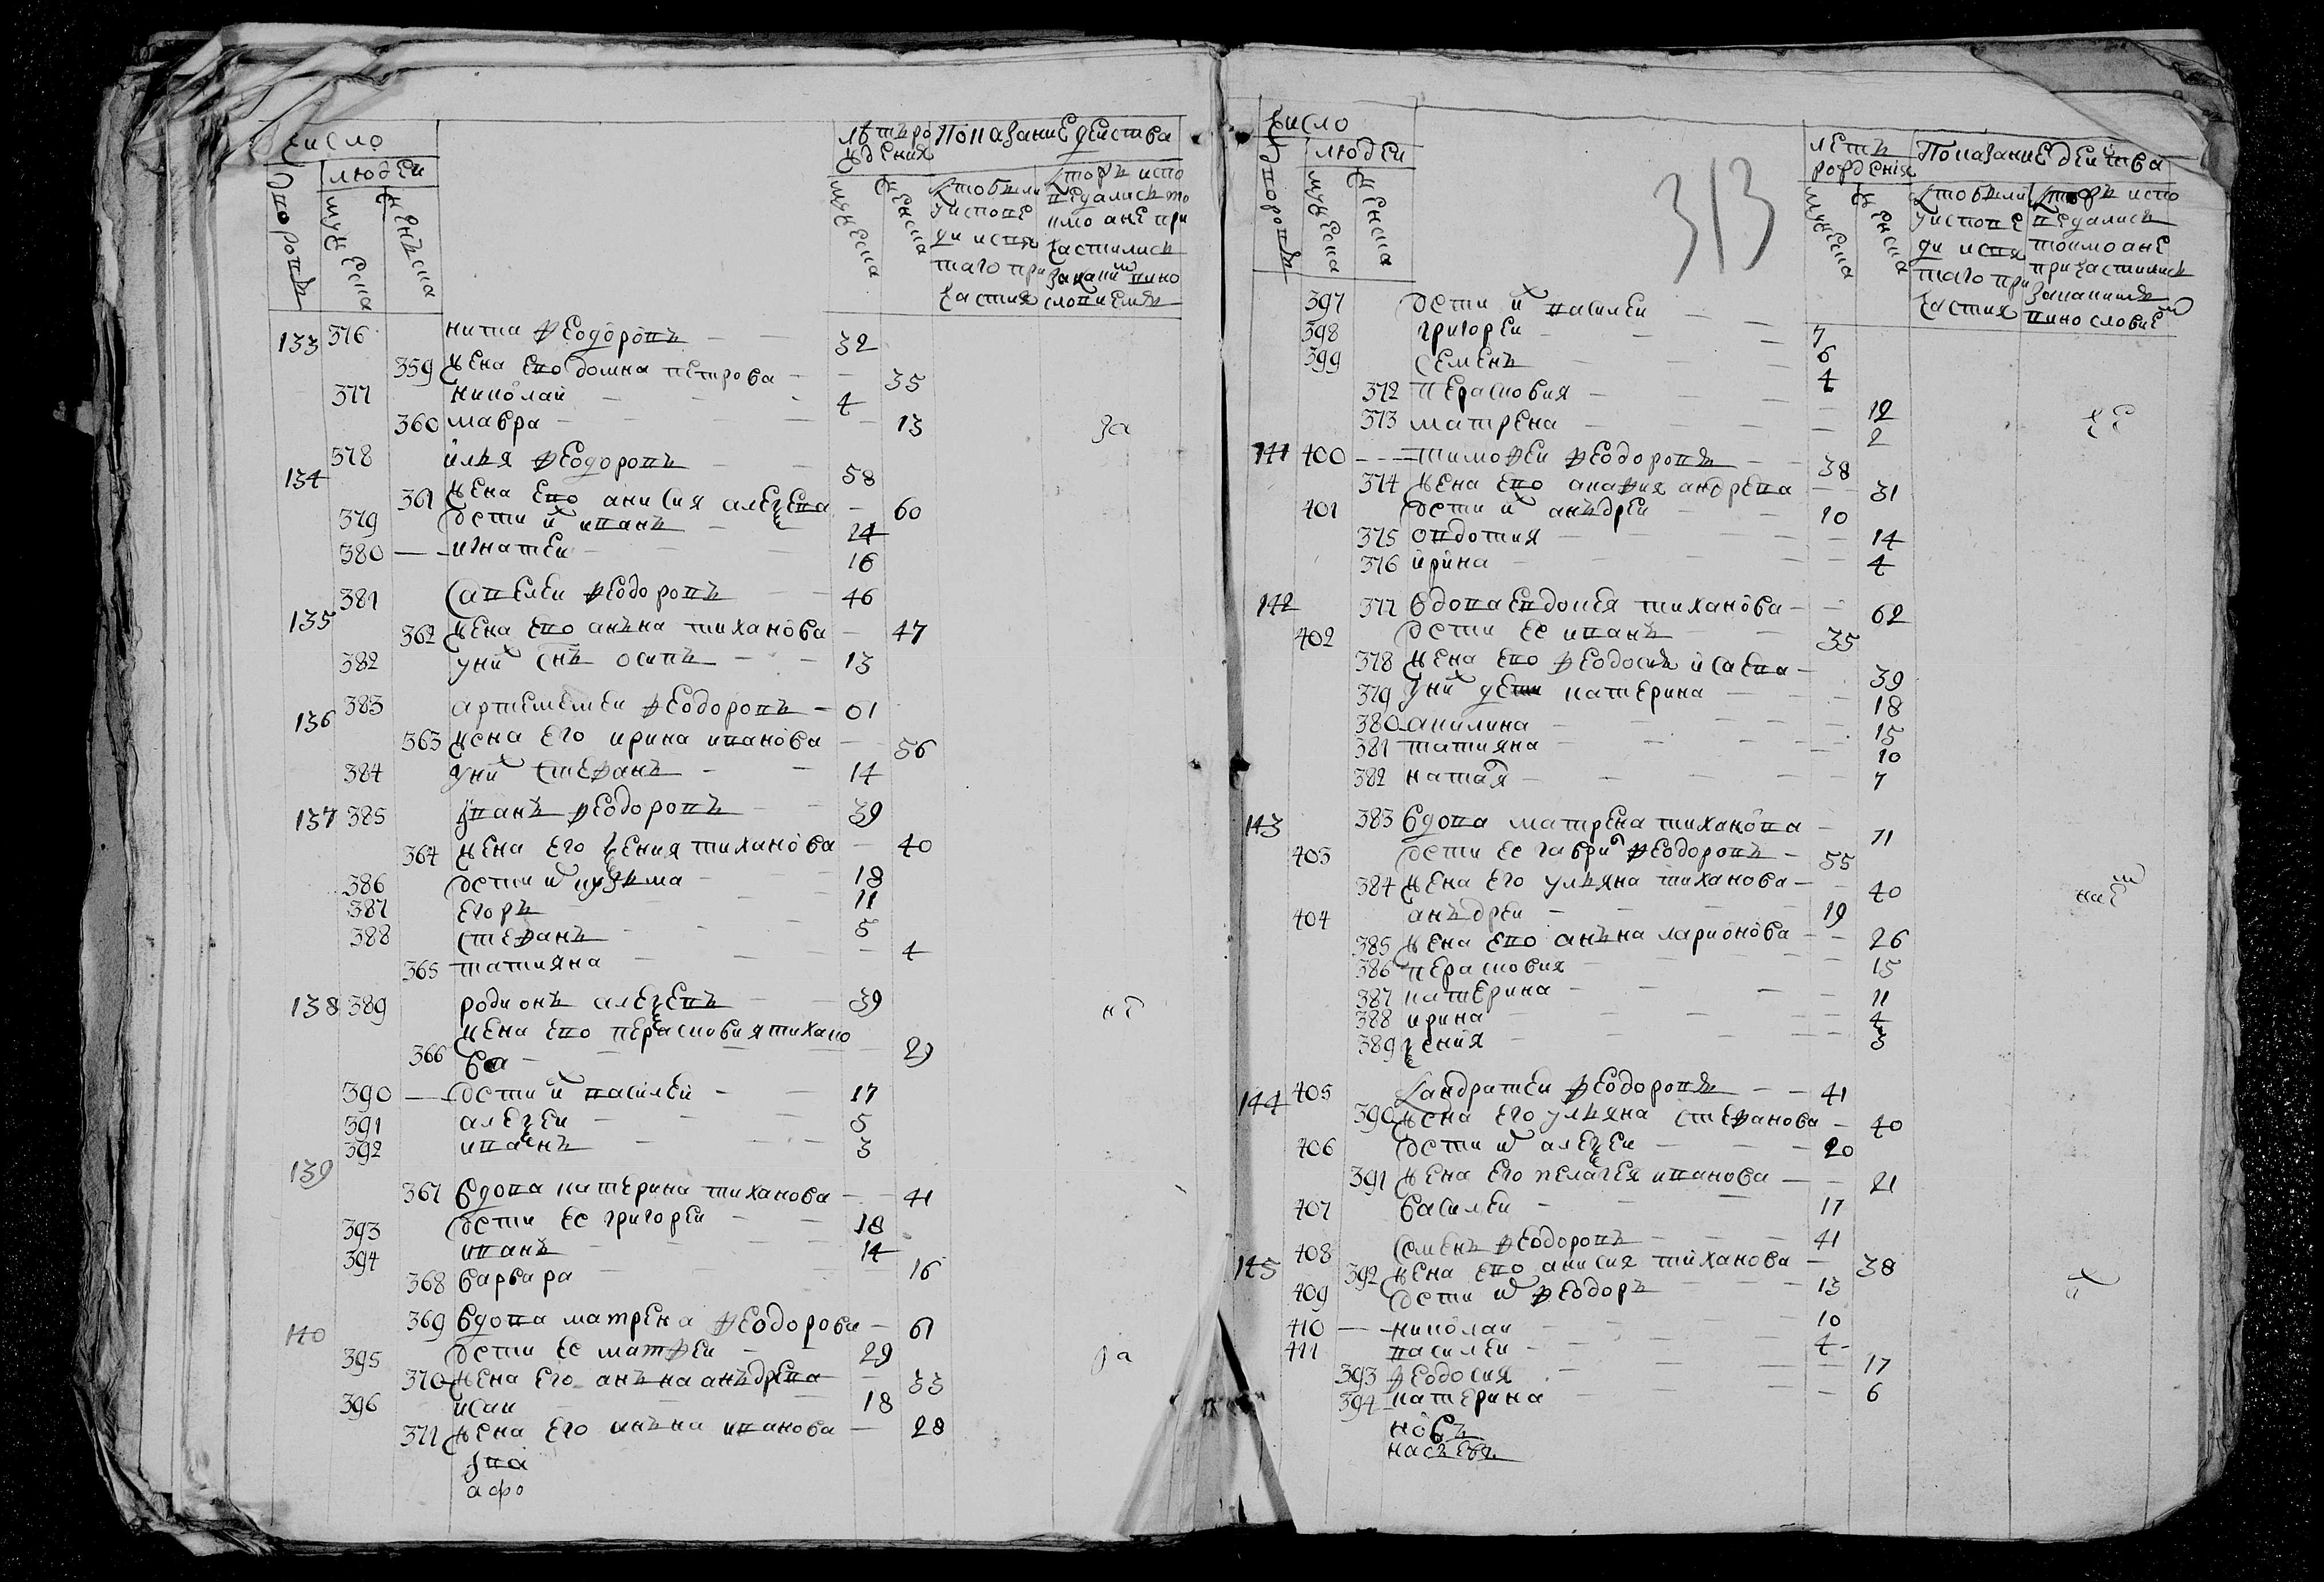 число
людей
дворовъ
мужеска
женска
летъ рождения
Показание действа
мужеска
женска
кто были у исповеди и святаго причастия
133 376 никита феодоровъ 32
359 жена ево домна петрова 35
377 николай 4
360 мавра 13
за
134 378 илья феодоровъ 58
361 жена ево анисия алеѯева 60
379 дети их иванъ 24
380 игнатеи 16
135 381 савелеи феодоровъ 46
362 жена ево анъна тиханова 47
382 у них снъ осипъ 13
136 383 артемеи феодоровъ 61
363 жена его ирина иванова 56
384 у них стефанъ 14
137 385 иванъ феодоровъ 39
364 жена его ѯения тиханова 40
386 дети их кузьма 18
387 егоръ 11
388 стефанъ 5
365 татияна 4
138 389 родионъ алеѯевъ 39
жена ево персковия тихано
366 ва 29
390 дети их василей 17
391 алеѯеи 5
392 иванъ 3
139
367 вдова катерина тиханова 41
393 дети ее григореи 18
394 иванъ 14
368 варвара 16
140 369 вдова матрена феодорова 61
395 дети ее матфеи 29
370 жена его анъна анъдрева 33
396 исаи 18
371 жена его анъна иванова 28
афо
313
число
людей
дворовъ
мужеска
женска
летъ рождения
Показание действа
мужеска
женска
397 дети их василеи 7
398 григореи 6
399 семенъ 4
372 персковия 12
373 матрена 2
141 400 тимофеи феодоровъ 38
374 жена ево агафия андрева 31
401 дети их анъдреи 10
375 овдотия 14
376 ирина 4
142 377 вдова евдокея тиханова 62
402 дети ее иванъ 35
378 жена ево феодосия исаева 39
379 у них дети катерина 18
380 акилина 15
381 татияна 10
382 наталя 7
143 383 вдова матрена тиханова 71
403 дети ее гаврил феодоровъ 55
384 жена его ульяна тиханова 40
404 анъдреи 19
385 жена ево анъна ларионова 26
386 персковия 15
387 катерина 11
388 ирина 4
389 ѯения 3
144 405 кандратеи феодоровъ 41
390 жена его ульяна стефанова 40
406 дети их алеѯеи 20
391 жена его пелагея иванова 21
407 василеи 17
145 408 семенъ феодоровъ 41
392 жена ево анисия тиханова 38
409 дети их феодоръ 13
410 николаи 10
411 василеи 4
393 феодосия 17
394 катерина 6